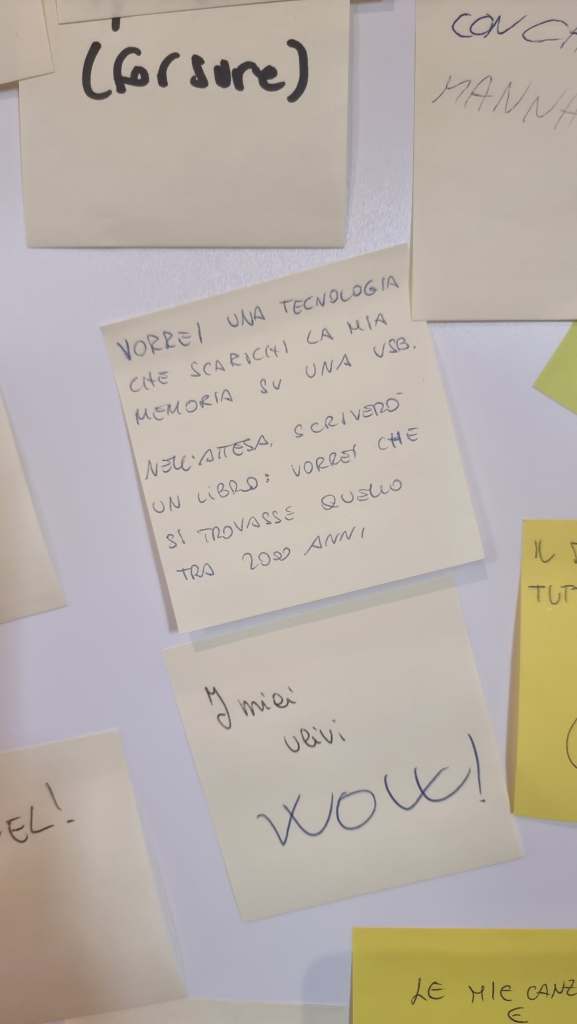 (for sure)
CON CA
MANNA
VORREI UNA TECNOLOGIA
CHE SCARICHI LA MIA
MEMORIA SU UNA USB.
NELL'ATTESA, SCRIVERÒ
UN LIBRO: VORREI CHE
SI TROVASSE QUELLO
TRA 2000 ANNI
IL
TUT
I miei
ulivi
WOW!
EL!
LE MIE CANZ
E